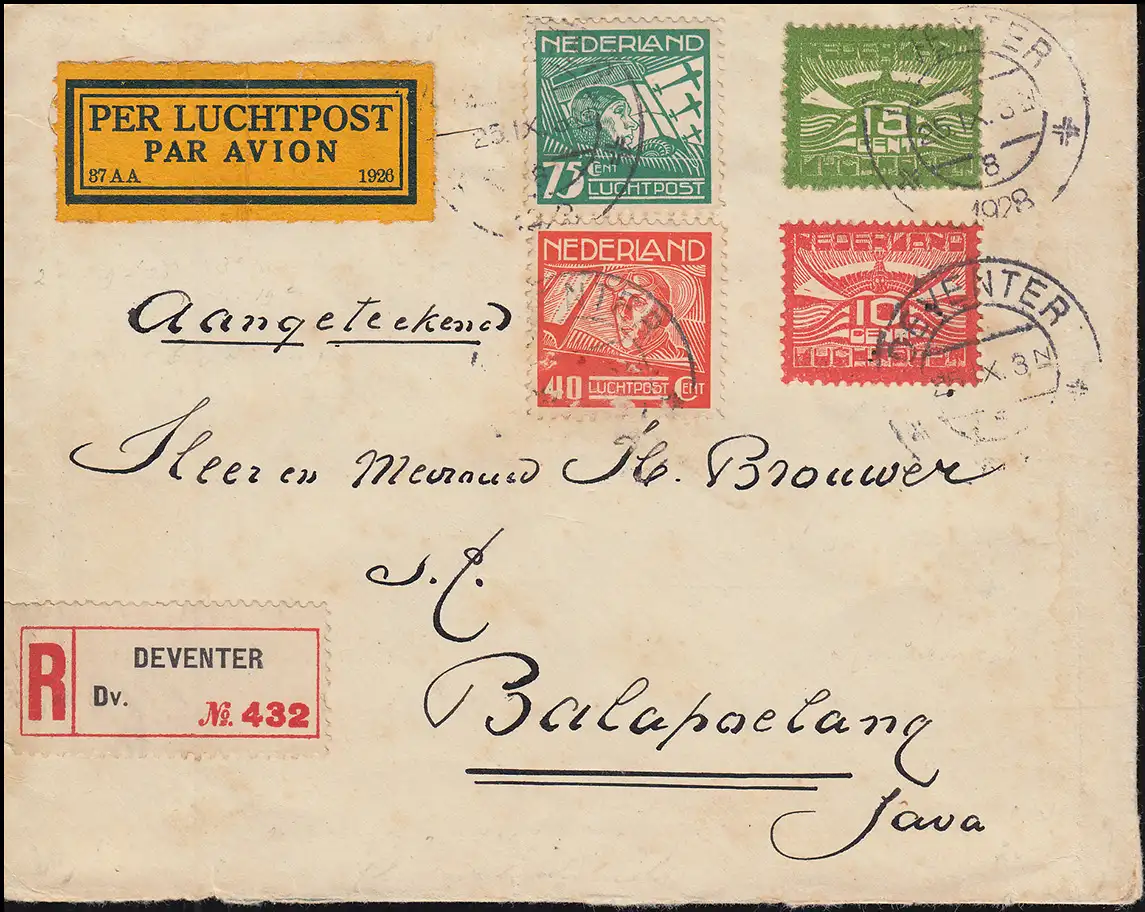 PER LUCHTPOST
PAR AVION
37 A A 1926
NEDERLAND
75 CENT
LUCHTPOST
NEDERLAND
15
CENT
NEDERLAND
40 LUCHTPOST CENT
NEDERLAND
10
CENT
25.IX.
1928
DEVENTER
.IX.3N
Aangeteekend
Heer en Mevrouw H. Brouwer
s.f.
Balapoelang
Java
R
DEVENTER
Dv.
No. 432